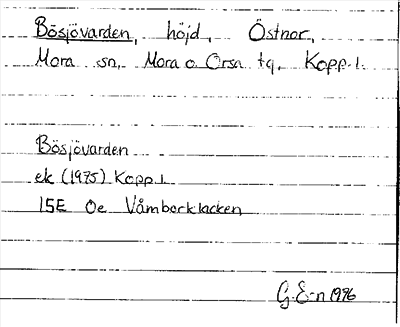 Bösjövarden, höjd, Östnor,
Mora sn, Mora o. Orsa tg, Kopp. l.
Bösjövarden
ek (1975) Kopp. l.
15E 0e Våmborklacken
G. E-n 1976